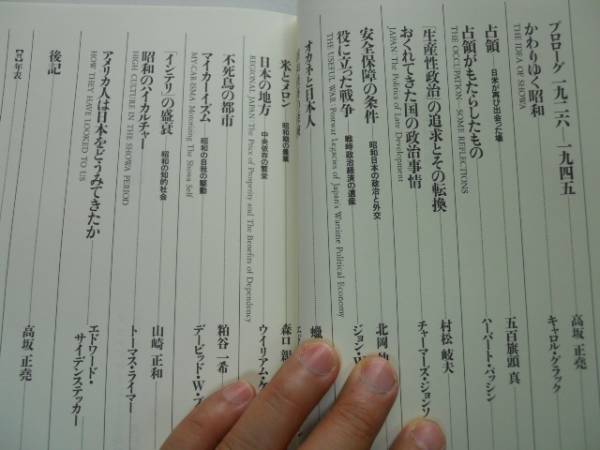 プロローグ 一九二六 一九四五
高坂 正堯
かわりゆく昭和
THE IDEA OF SHOWA
キャロル・グラック
占領 日米が再び出会った場
五百旗頭 真
占領がもたらしたもの
THE OCCUPATION—SOME REFLECTIONS
ハーバート・パッシン
「生産性政治」の追求とその転換
村松 岐夫
おくれてきた国の政治事情
JAPAN: The Politics of Late Development
チャーマーズ・ジョンソ
安全保障の条件 昭和日本の政治と外交
北岡
役に立った戦争 戦時政治経済の遺産
THE USEFUL WAR: Postwar Legacies of Japan's Wartime Political Economy
ジョン・W
オカネと日本人
蠟
米とメロン 昭和期の農業
森口 親
日本の地方 中央依存の繁栄
REGIONAL JAPAN: The Price of Prosperity and The Benefits of Dependency
ウイリアム・
不死鳥の都市
粕谷 一希
マイカーイズム 昭和の自我の駆動
MYCARISMA: Motorizing The Showa Self
デービッド・W・
「インテリ」の盛衰 昭和の知的社会
山崎 正和
昭和のハイカルチャー
HIGH CULTURE IN THE SHOWA PERIOD
トーマス・ライマー
アメリカ人は日本をどうみてきたか
HOW THEY HAVE LOOKED TO US
エドワード・
サイデンステッカー
後記
高坂 正堯
年表